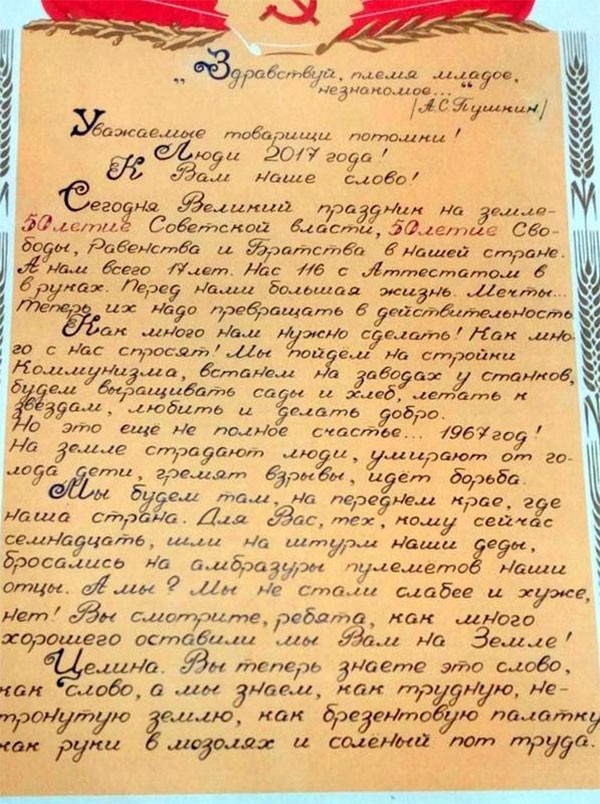 „Здравствуй, племя младое,
незнакомое..."
/А.С.Пушкин/
Уважаемые товарищи потомки!
Люди 2017 года!
К Вам наше слово!
Сегодня Великий праздник на земле-
50летие Советской власти, 50летие Сво-
боды, Равенства и Братства в нашей стране.
А нам всего 17 лет. Нас 116 с Аттестатом в
в руках. Перед нами большая жизнь. Мечты...
Теперь их надо превращать в действительность
Как много нам нужно сделать! Как мно-
го с нас спросят! Мы пойдём на стройки
Коммунизма, встанем на заводах у станков,
будем выращивать сады и хлеб, летать к
звёздам, любить и делать добро.
Но это ещё не полное счастье... 1967 год!
На земле страдают люди, умирают от го-
лода дети, гремят взрывы, идёт борьба.
Мы будем там, на переднем крае, где
наша страна. Для Вас, тех, кому сейчас
семнадцать, шли на штурм наши деды,
бросались на амбразуры пулемётов наши
отцы. А мы? Мы не стали слабее и хуже,
нет! Вы смотрите, ребята, как много
хорошего оставили мы Вам на Земле!
Целина. Вы теперь знаете это слово,
как слово, а мы знаем, как трудную, не-
тронутую землю, как брезентовую палатку
как руки в мозолях и солёный пот труда.